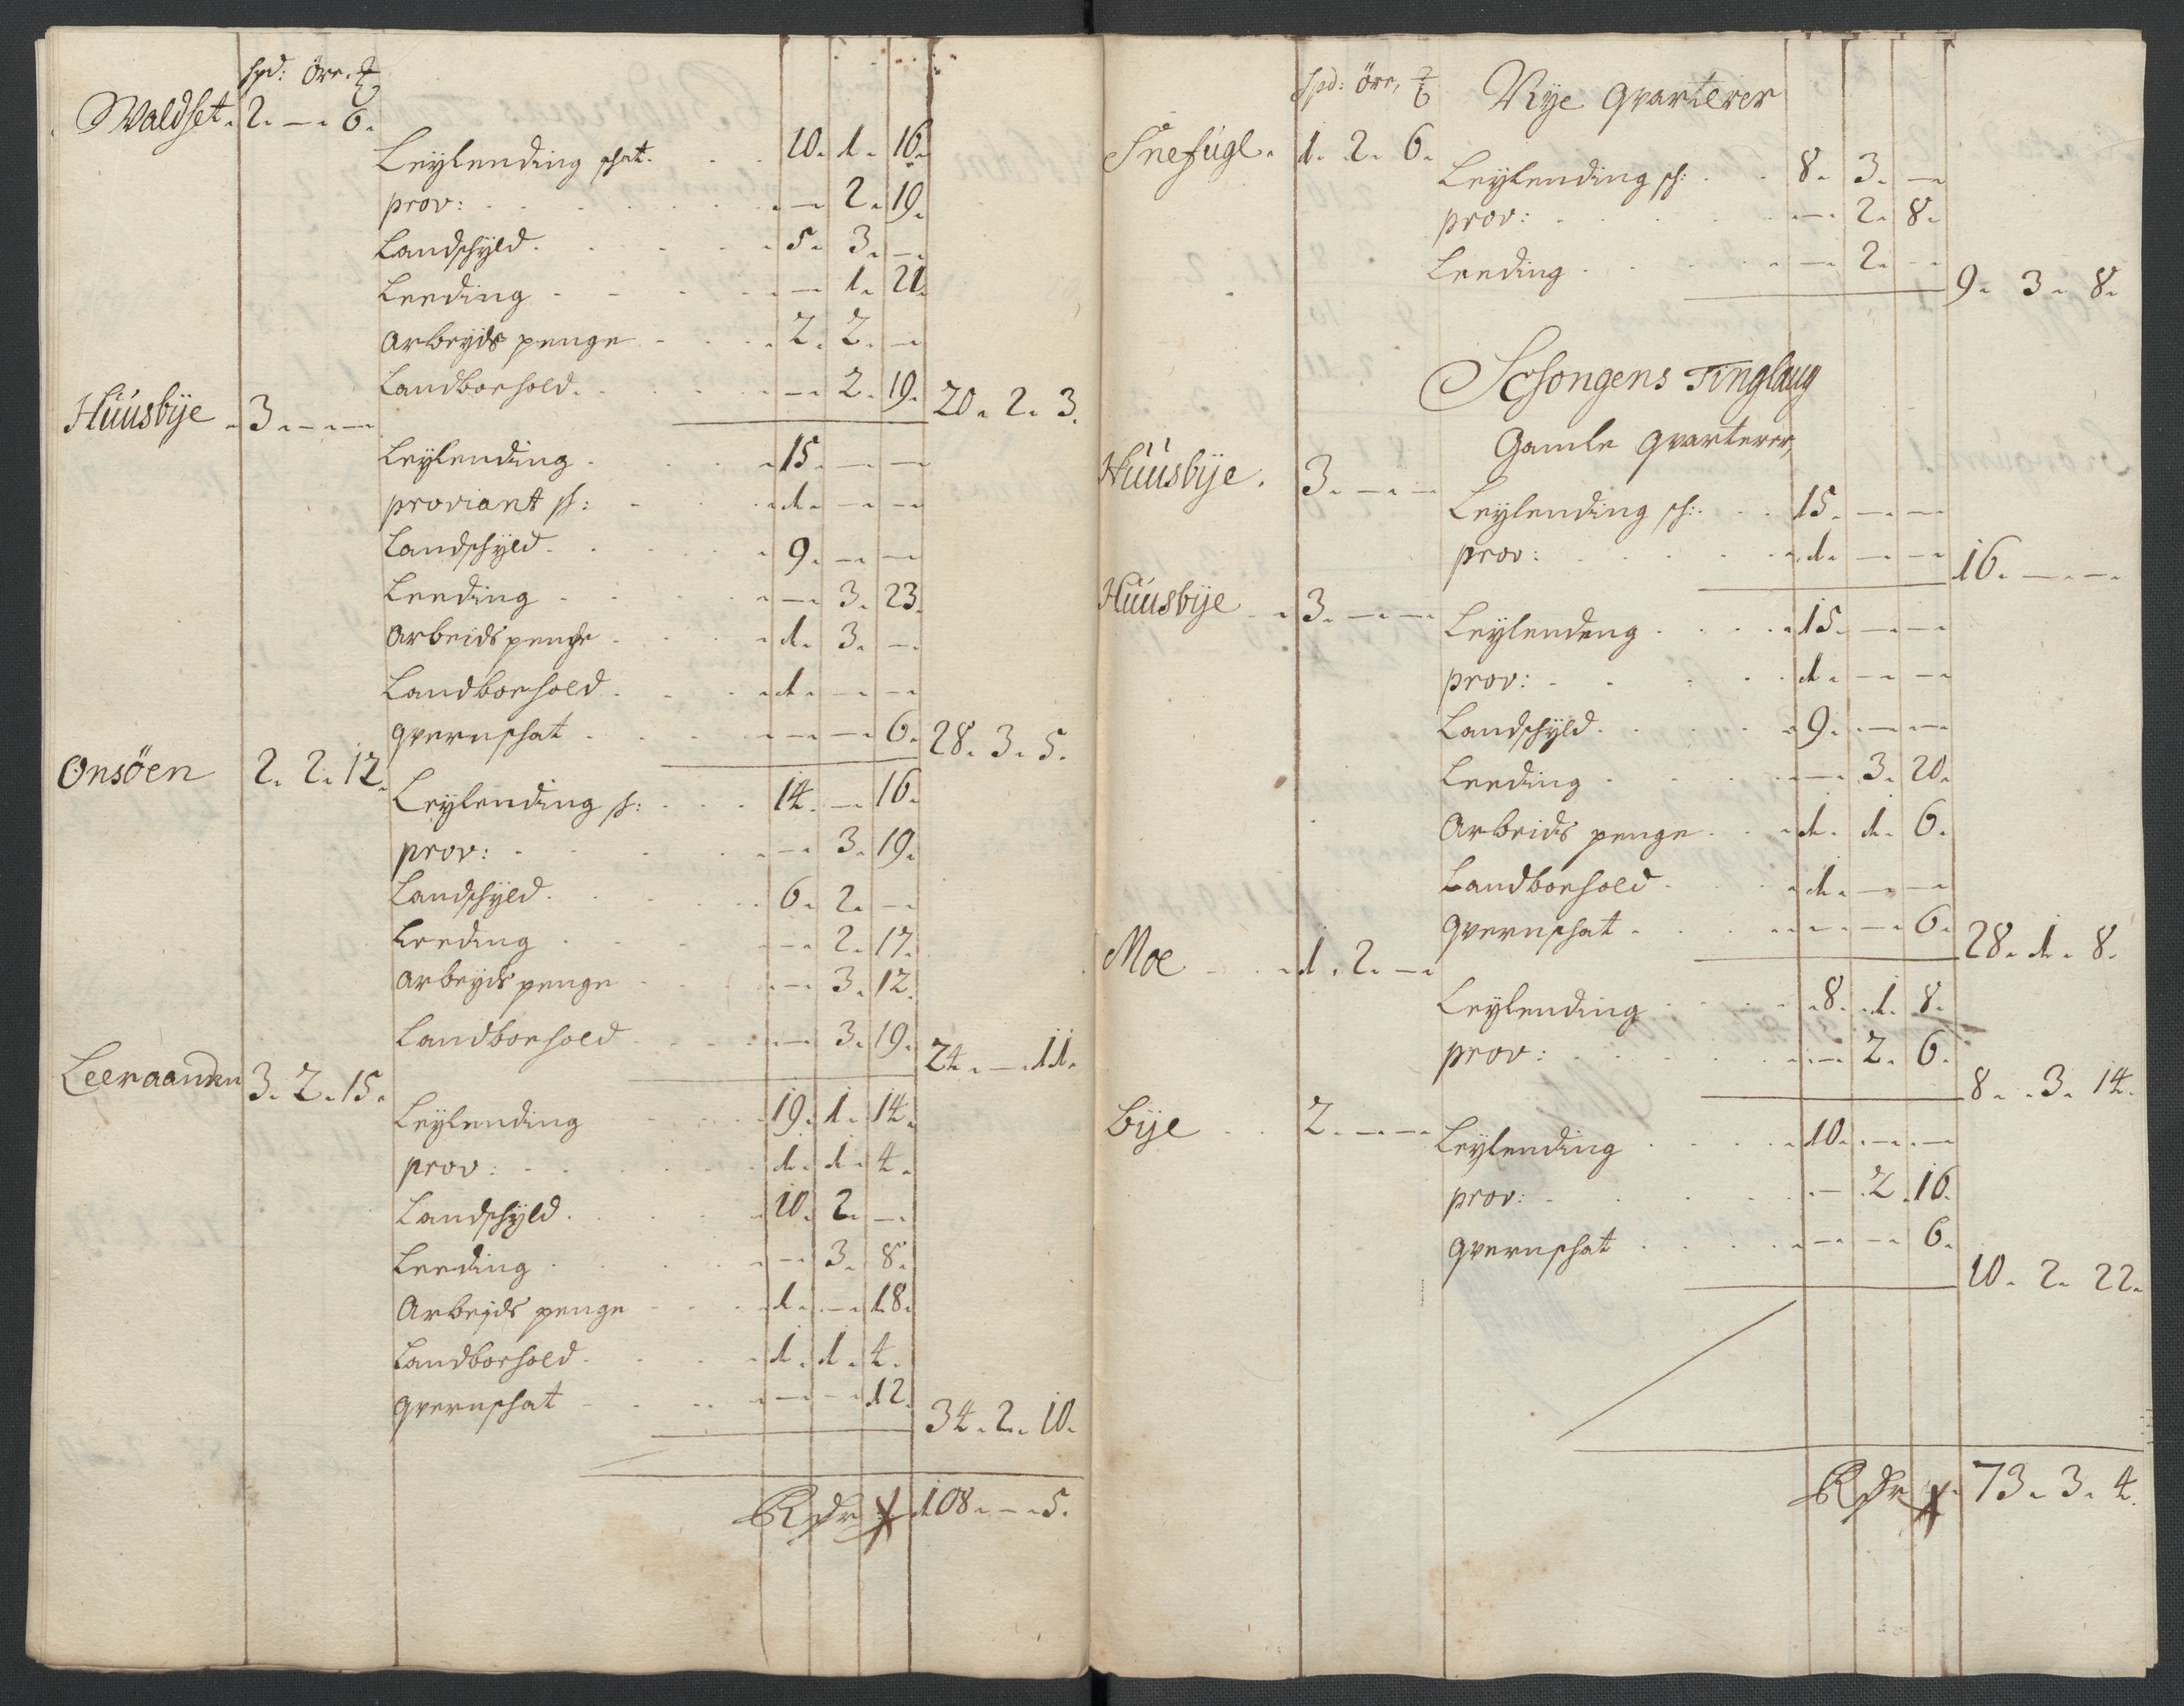 Spd: Öre. ₰
Waldset. 2. — 6.
Leÿlending schat. 10. 1. 16.
prov: — 2. 19.
Landschÿld. 5. 3. —
Leeding — 1. 21.
Arbeÿds penge 2. 2. —
Landboehold. — 2. 19. 20. 2. 3.
Huusbÿe 3. — —
Leÿlending 15. — —
proviant sch: 1. — —
Landschÿld 9. — —
Leeding — 3. 23.
Arbeids penge 1. 3. —
Landboehold 1. — —
qvernschat — — 6. 28. 3. 5.
Onsöen 2. 2. 12.
Leÿlending sch: 14. — 16.
prov: — 3. 19.
Landschÿld. 6. 2. —
Leeding — 2. 17.
Arbeÿds penge — 3. 12.
Landboehold — 3. 19. 24. — 11.
Leeraanden 3. 2. 15.
Leÿlending 19. 1. 14.
prov: 1. 1. 4.
Landschÿld. 10. 2. —
Leeding — 3. 8.
Arbejds penge 1. — 18.
Landboehold. 1. 1. 4.
qvernschat — — 12. 34. 2. 10.
Rdr 108. — 5.
Spd: Öre, ₰ Nÿe qvarterer
Snefugl. 1. 2. 6.
Leÿlending sch: 8. 3. —
prov: — 2. 8.
Leeding — 2. — 9. 3. 8.
Schongens Tinglaug
Gamle qvarterer,
Huusbÿe. 3. — —
Leÿlending sch: 15. — —
prov: 1. — — 16. — —
Huusbÿe 3. — —
Leÿlending 15. — —
prov: 1. — —
Landschÿld. 9. — —
Leeding — 3. 20.
Arbeids penge 1. 1. 6.
Landboehold 1. — —
qvernschat — — 6. 28. 1. 8.
Moe 1. 2. —
Leÿlending 8. 1. 8.
prov: — 2. 6. 8. 3. 14.
Bÿe 2. — —
Leÿlending 10. — —
prov: — 2. 16.
qvernschat — — 6. 10. 2. 22.
Rdr 73. 3. 4.